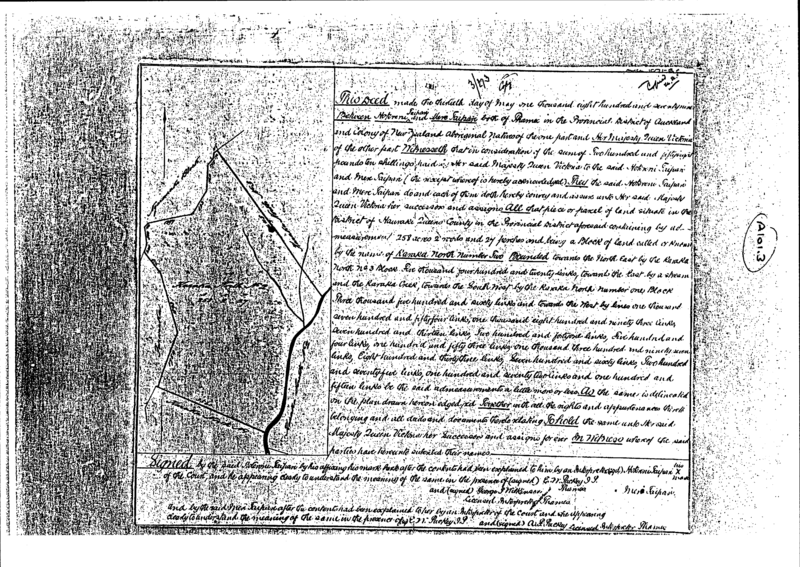 3/273
A101.3
This Deed made the thirtieth day of May one thousand eight hundred and seventy nine
Between Hotoreni Taipari and Mere Taipari both of Thames in the Provincial District of Auckland
and Colony of New Zealand Aboriginal Natives of the one part and Her Majesty Queen Victoria
of the other part Witnesseth that in consideration of the sum of Two hundred and fifty eight
pounds ten shillings paid by Her said Majesty Queen Victoria to the said Hotoreni Taipari
and Mere Taipari (the receipt whereof is hereby acknowledged) They the said Hotoreni Taipari
and Mere Taipari do and each of them doth hereby convey and assure unto Her said Majesty
Queen Victoria her successors and assigns All that piece or parcel of land situate in the
District of Hauraki Queens County in the Provincial District aforesaid containing by ad-
measurement 258 acres 2 roods and 27 perches and being a Block of land called or known
by the name of Karaka North Number Two Bounded towards the North East by the Karaka
North No 3 Block Six thousand four hundred and twenty links, towards the East by a stream
and the Karaka Creek, towards the South West by the Karaka North Number one Block
Three thousand five hundred and sixty links and towards the West by lines one thousand
seven hundred and fifty four links, one thousand eight hundred and ninety three links
seven hundred and thirteen links, Two hundred and forty six links, Six hundred and
four links, one hundred and fifty three links, one thousand three hundred and ninety seven
links, Eight hundred and forty five links, Seven hundred and sixty links, Two hundred
and seventy five links, one hundred and seventy two links and one hundred and
fifteen links be the said admeasurements a little more or less As the same is delineated
on the plan drawn hereon edged red Together with all the rights and appurtenances thereto
belonging and all deeds and documents thereto relating To hold the same unto Her said
Majesty Queen Victoria her Successors and assigns for ever In Witness whereof the said
parties have hereunto subscribed their names
Signed by the said Hotoreni Taipari by his affixing his mark hereto after the contents had been explained to him by an Interpreter (sgd) Hotoreni Taipari his X mark
of the Court, and he appearing clearly to understand the meaning of the same in the presence of (signed) E. W. Puckey J.P.
Thames
and (signed) George Wilkinson
Mere Taipari
Licensed Interpreter Thames
and by the said Mere Taipari after the contents had been explained to her by an Interpreter of the Court and she appearing
clearly to understand the meaning of the same in the presence of (sgd) E. W. Puckey J.P. and (signed) Puckey Licensed Interpreter Thames